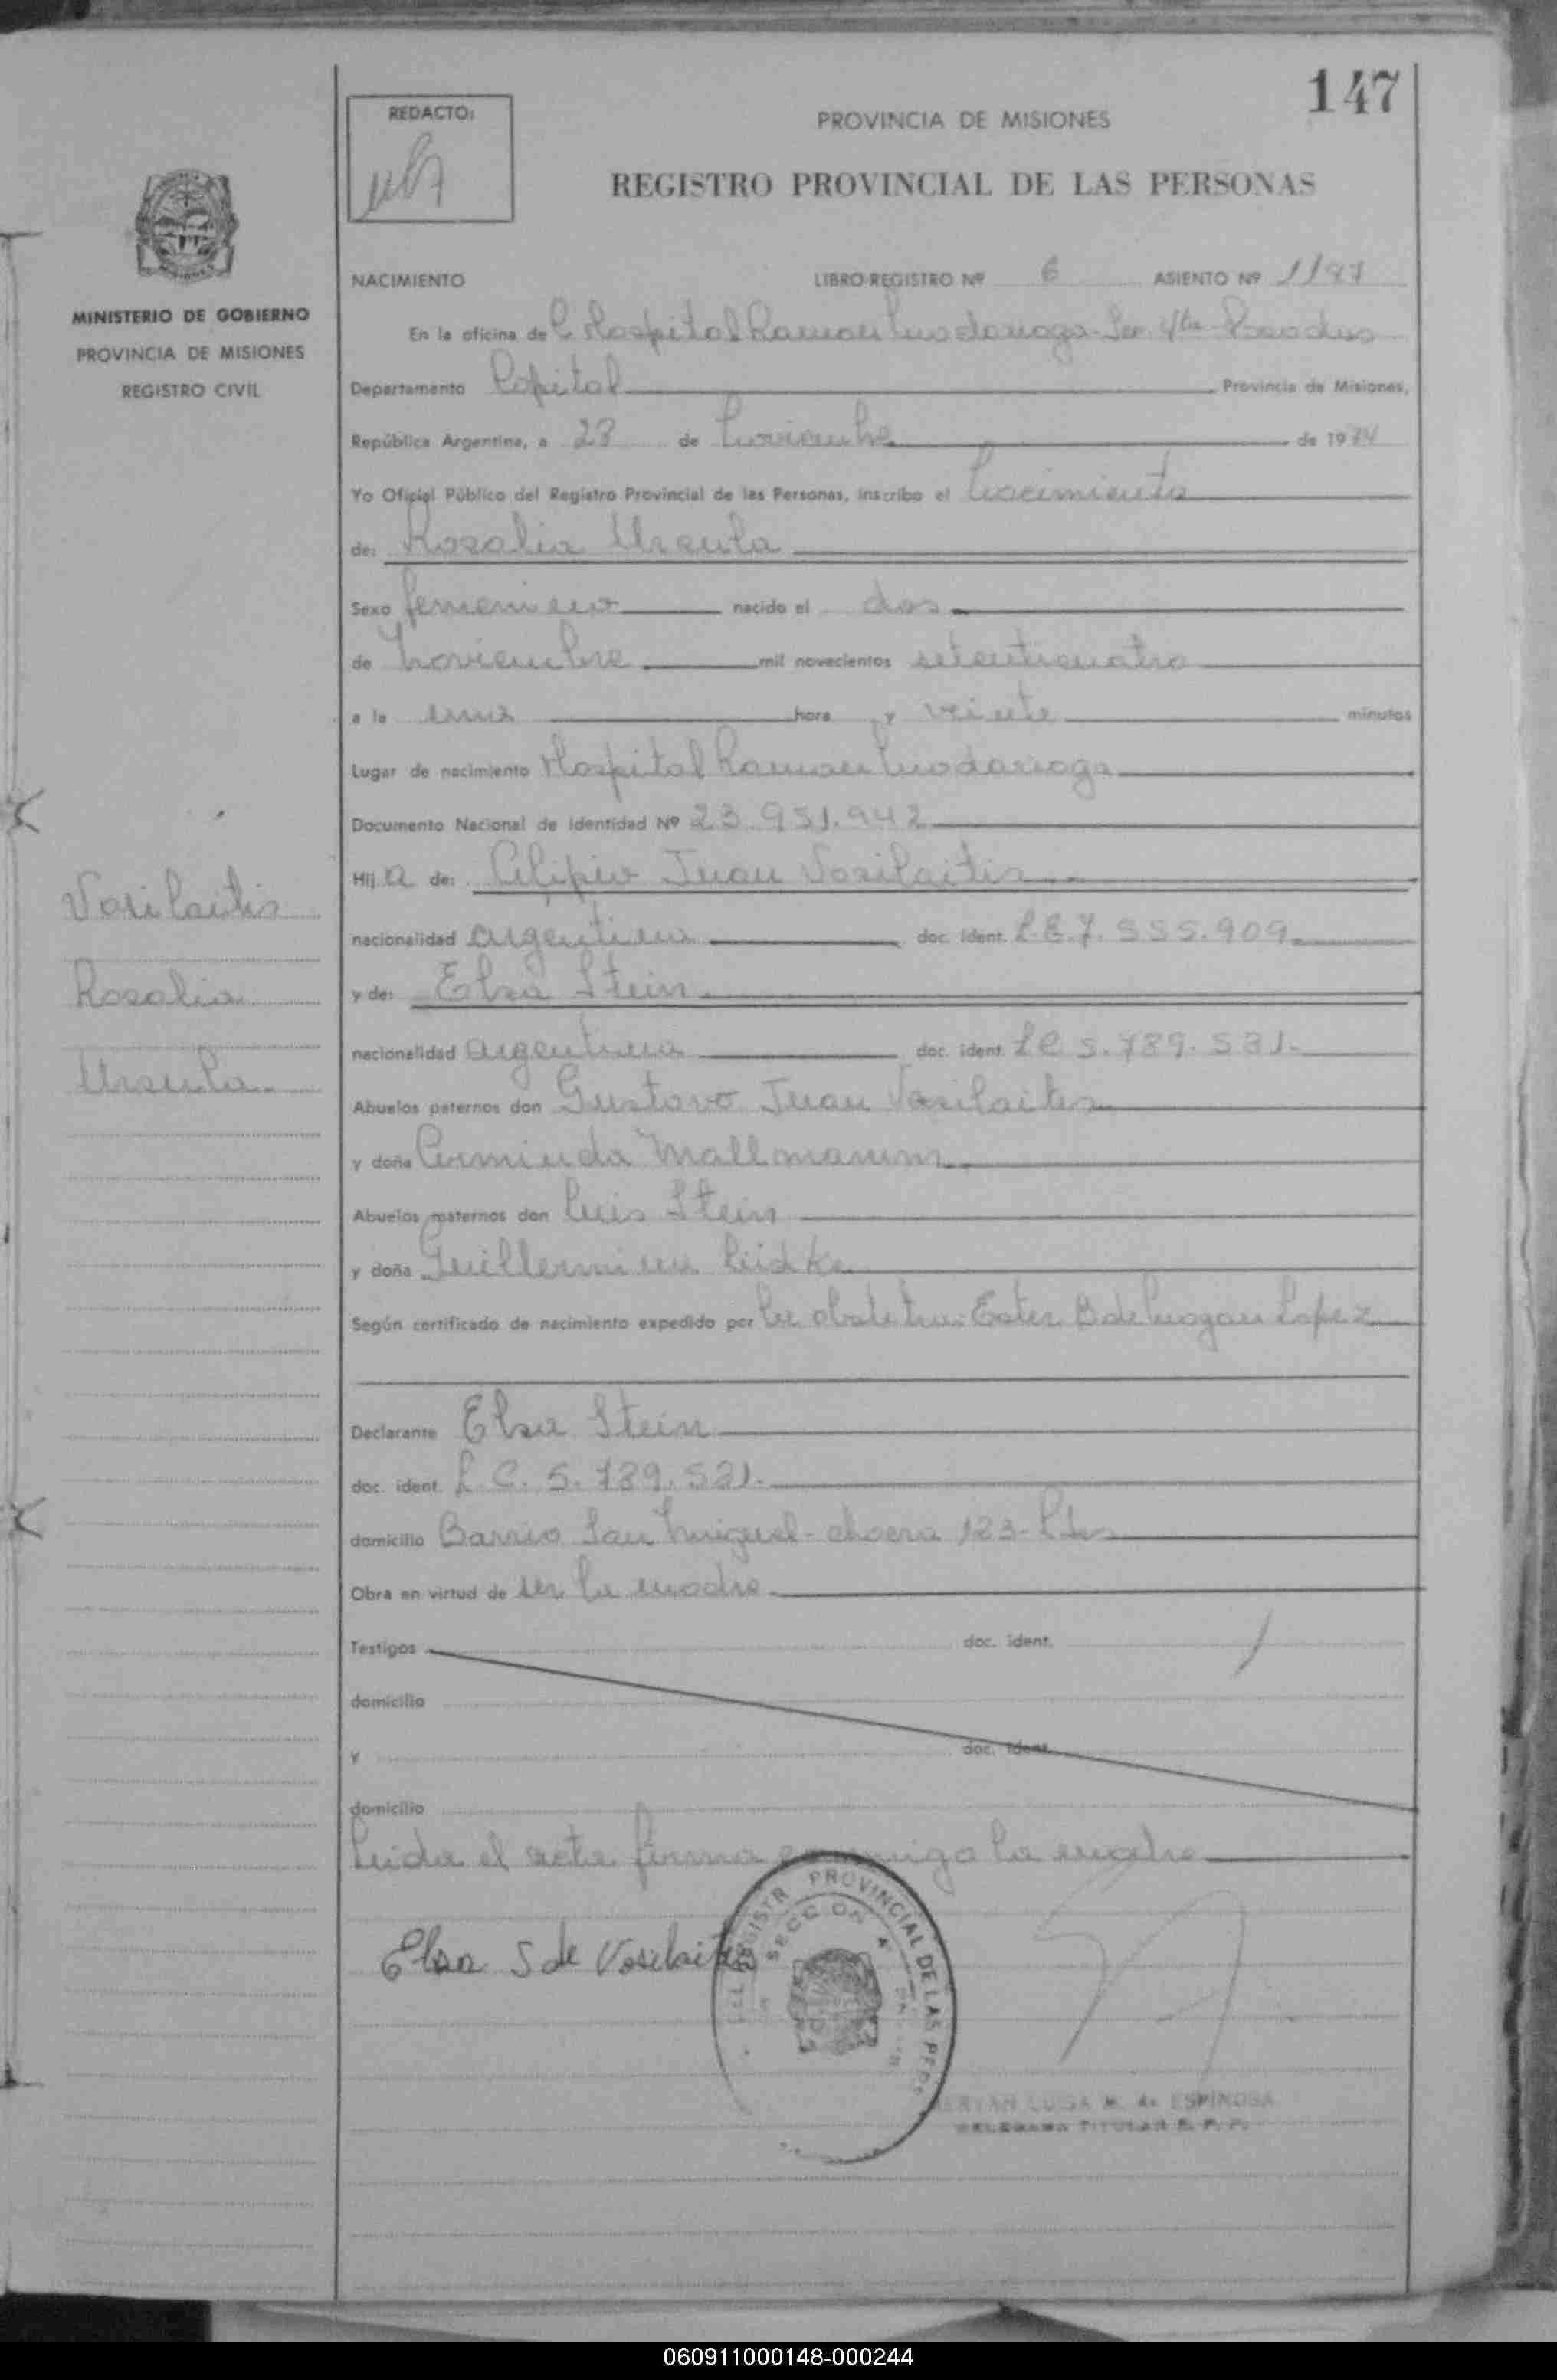 147
REDACTO:
PROVINCIA DE MISIONES
REGISTRO PROVINCIAL DE LAS PERSONAS
MINISTERIO DE GOBIERNO
PROVINCIA DE MISIONES
REGISTRO CIVIL
NACIMIENTO LIBRO-REGISTRO Nº 6 ASIENTO Nº 1187
En la oficina de Hospital Ramon Madariaga - Sec. 4ta - Posadas
Departamento Capital Provincia de Misiones,
República Argentina, a 28 de Noviembre de 1974
Yo Oficial Público del Registro Provincial de las Personas, inscribo el Nacimiento
de: Rosalia Ursula
Sexo femenino nacido el dos
de Noviembre mil novecientos setenticuatro
a la una hora y veinte minutos
Lugar de nacimiento Hospital Ramon Madariaga
Documento Nacional de Identidad Nº 23.951.942
Hij a de: Alipio Juan Vasilaitis
nacionalidad argentina doc. ident. L.E. 7.555.909
y de: Elsa Stein
nacionalidad argentina doc. ident. LC 5.789.531.
Abuelos paternos don Gustavo Juan Vasilaitis
y doña Erminda Mallmann
Abuelos maternos don Luis Stein
y doña Guillermina
Según certificado de nacimiento expedido por la obstetra: Ester B de Lopez
Vasilaitis
Rosalia
Ursula
Declarante Elsa Stein
doc. ident. L.C. 5.789.531.
domicilio Barrio San Miguel - chacra 123 -
Obra en virtud de ser la madre
Testigos doc. ident.
domicilio
y doc. ident.
domicilio
Leida el acta firma conmigo la madre
Elsa S de Vasilaitis
REGISTR PROVINCIAL DE LAS PERS
SECCION 4
LUISA M. de ESPINOSA
DELEGADA TITULAR R. P. P.
060911000148-000244